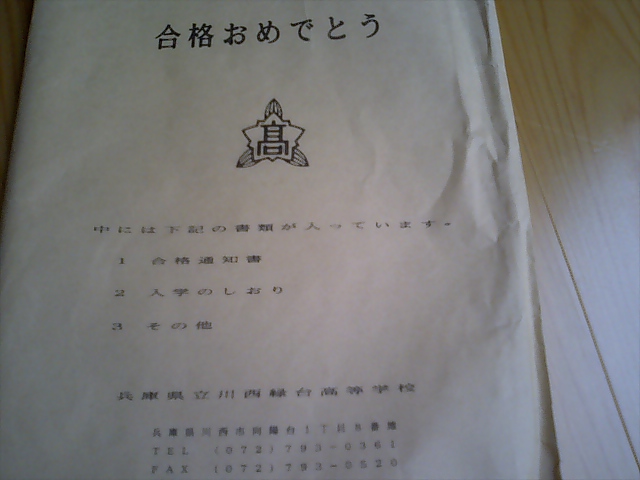 合格おめでとう
高
中には下記の書類が入っています。
1 合格通知書
2 入学のしおり
3 その他
兵庫県立川西緑台高等学校
兵庫県川西市向陽台1丁目8番地
TEL (072)793-0361
FAX (072)793-0520